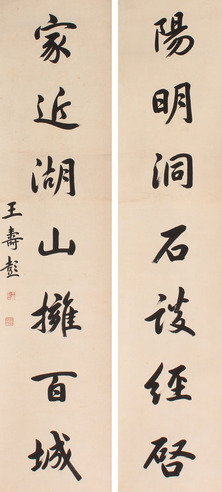 陽明洞石談經啓
家近湖山擁百城
王壽彭